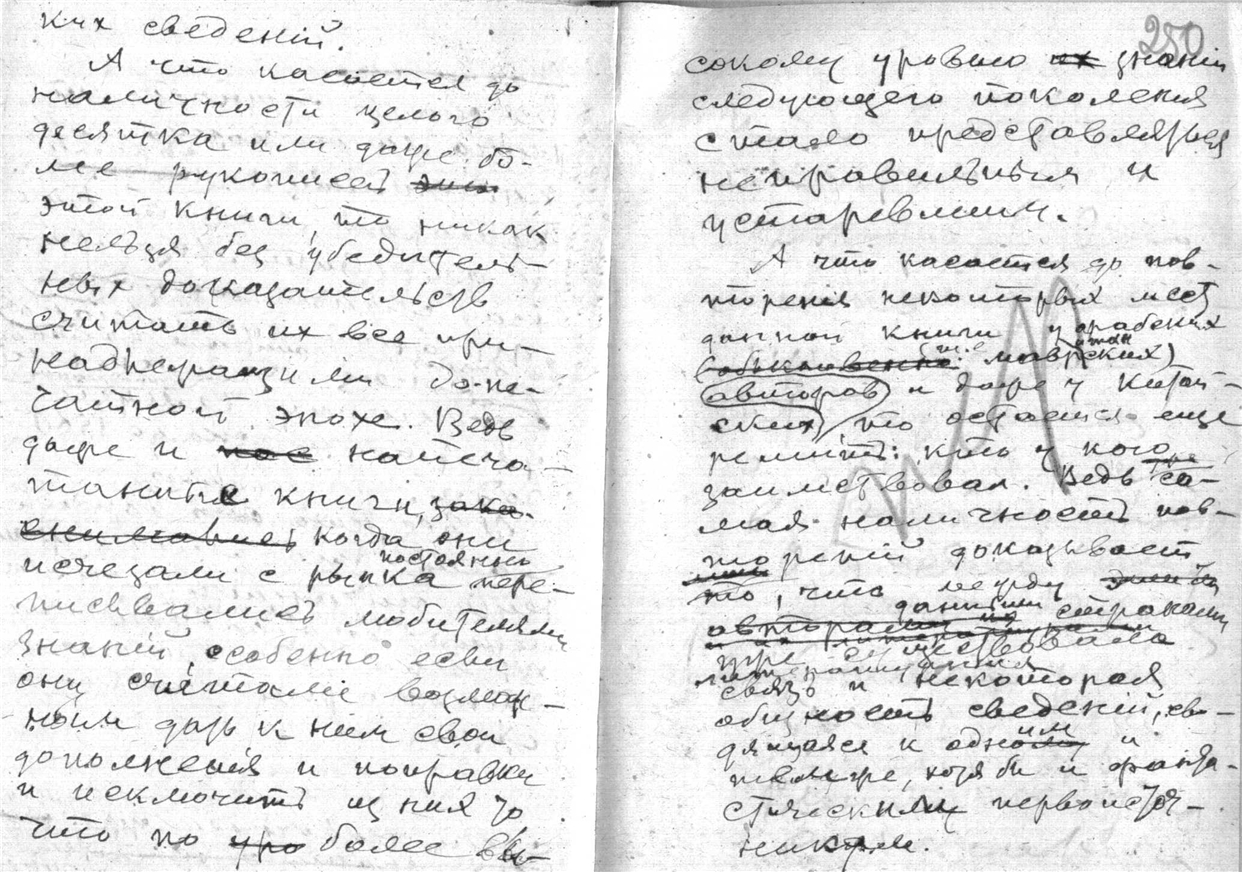 ких сведеній.
А что касается до
наличности целого
десятка или даже бо-
лее рукописей
этой книги, то никак
нельзя без убедитель-
ных доказательств
считать их все при-
надлежащими до-пе-
чатной эпохе. Ведь
даже и нас напеча-
танныя книги,
когда они
исчезали с рынка постоянно пере-
писывались любителями
знаній, особенно если
они считали возмож-
ным дать к ним свои
дополненія и поправки
и исключить из них то
что по уро более вы-
250
сокому уровню их знаній
следующего поколения
стало представляться
неправильным и
устаревшим.
А что касается до пов-
торенія некоторых мест
данной книги у арабских
(обыкновенно мавританских)
(авторов) и даже у Китай-
ских, то остается еще
решить: кто у кого
заимствовал. Ведь са-
мая наличность пов-
тореній доказывает
то, что между
авторами данными странами
уже существовала
литературная
связь и некоторая
общность сведеній, сво-
дящаяся к одним и
тем же, хотя бы и фанта-
стическим первоисточ-
никам.